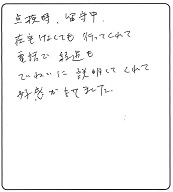 点検時、留守中、
在宅してなくても 行ってくれて
電話で 経過も
ていねいに 説明して くれて
好感が もてました。